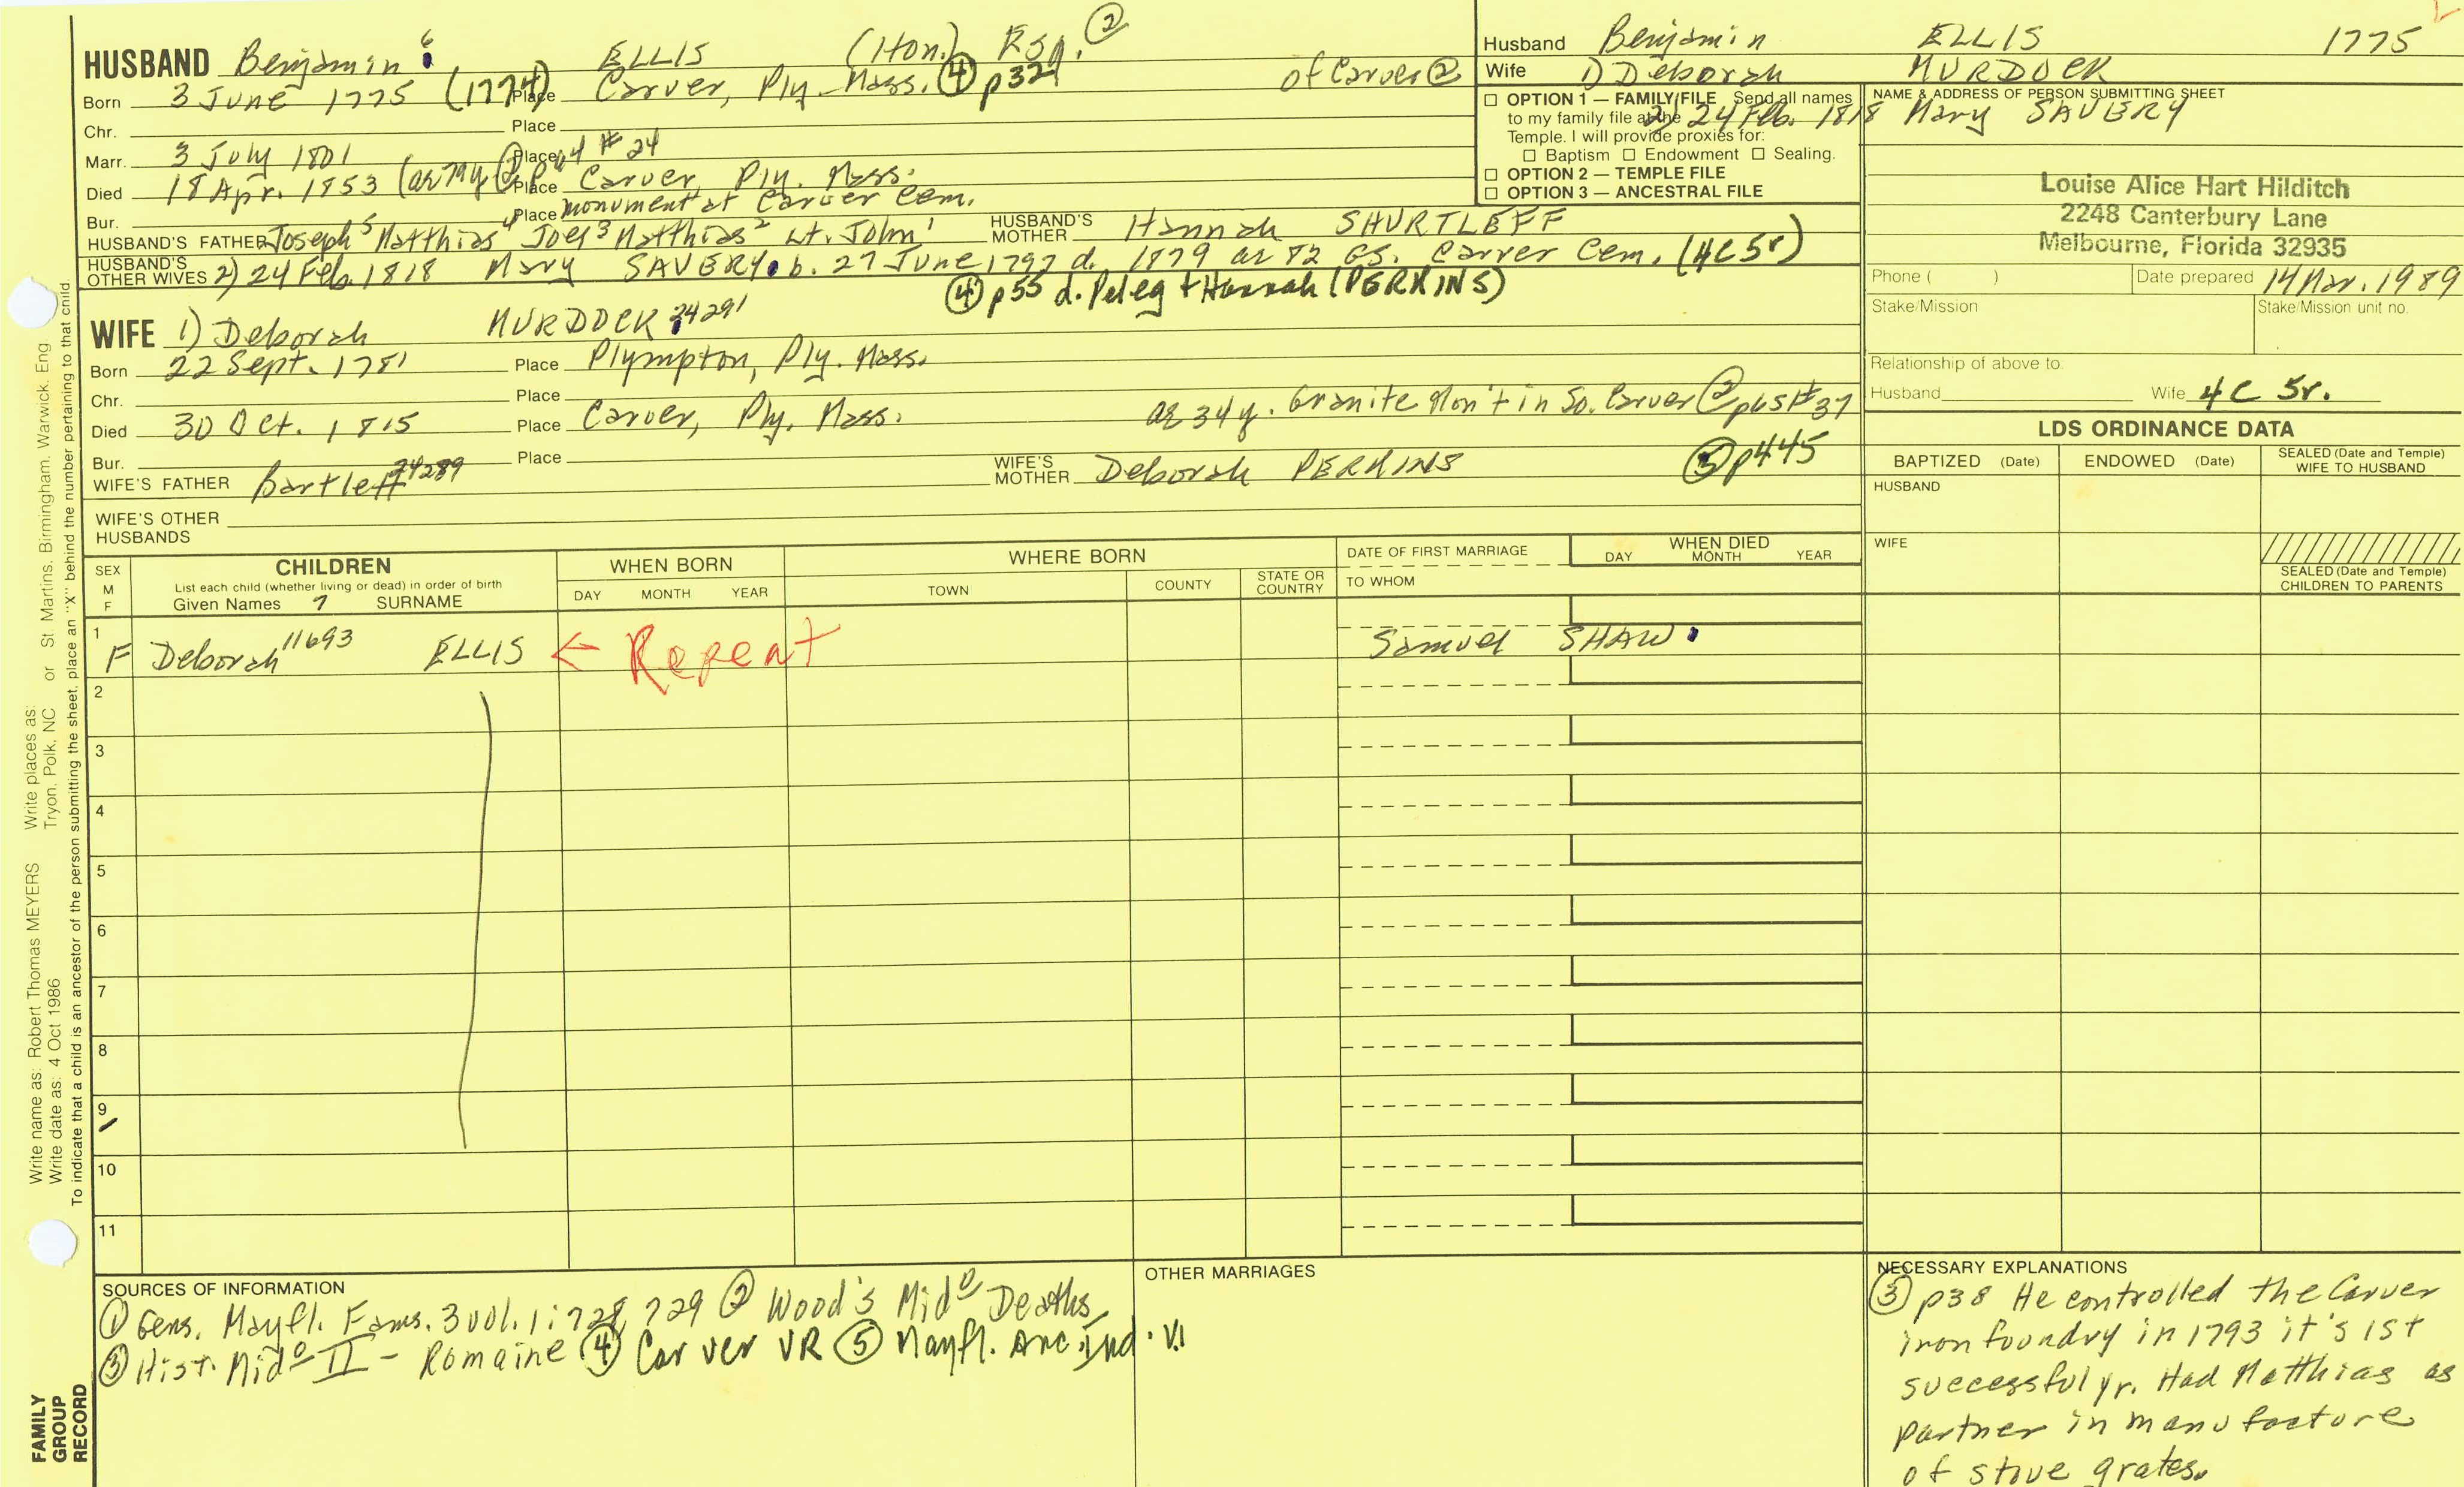 HUSBAND Benjamin 6 ELLIS (Hon.) Esq. ②
Born 3 June 1775 (1774) Place Carver, Ply. Mass. ④ p32 of Carver ②
Chr. Place
Marr. 3 July 1801 Place
Died 18 Apr. 1853 (ae 79y ② p64 #24 Place Carver, Ply. Mass.
Bur. Place monument at Carver Cem.
HUSBAND'S FATHER Joseph5 Matthias4 Joel3 Matthias2 Lt. John1 HUSBAND'S MOTHER Hannah SHURTLEFF
HUSBAND'S OTHER WIVES 2) 24 Feb. 1818 Mary SAVERY b. 27 June 1797 d. 1879 ae 82 GS. Carver Cem. (4C5r)
④ p55 d. Peleg + Hannah (PERKINS)
WIFE 1) Deborah MURDOCK 24291
Born 22 Sept. 1781 Place Plympton, Ply. Mass.
Chr. Place
Died 30 Oct. 1815 Place Carver, Ply. Mass. ae 34y. Granite Mon't in So. Carver ② p65 #37
Bur. Place
WIFE'S FATHER Bartlett 24289 WIFE'S MOTHER Deborah PERKINS ⑤ p445
WIFE'S OTHER HUSBANDS
Husband Benjamin ELLIS 1775
Wife 1) Deborah MURDOCK
2) 24 Feb. 1818 Mary SAVERY
☐ OPTION 1 — FAMILY FILE Send all names
to my family file at the
Temple. I will provide proxies for:
☐ Baptism ☐ Endowment ☐ Sealing.
☐ OPTION 2 — TEMPLE FILE
☐ OPTION 3 — ANCESTRAL FILE
NAME & ADDRESS OF PERSON SUBMITTING SHEET
Louise Alice Hart Hilditch
2248 Canterbury Lane
Melbourne, Florida 32935
Phone ( ) Date prepared 14 Mar. 1989
Stake/Mission Stake/Mission unit no.
Relationship of above to:
Husband Wife 4C 5r.
LDS ORDINANCE DATA
BAPTIZED (Date) ENDOWED (Date) SEALED (Date and Temple) WIFE TO HUSBAND
HUSBAND
WIFE
SEALED (Date and Temple) CHILDREN TO PARENTS
SEX M F CHILDREN WHEN BORN WHERE BORN DATE OF FIRST MARRIAGE WHEN DIED
List each child (whether living or dead) in order of birth
Given Names 7 SURNAME DAY MONTH YEAR TOWN COUNTY STATE OR COUNTRY TO WHOM DAY MONTH YEAR
1 F Deborah 11693 ELLIS ← Repeat Samuel SHAW
2
3
4
5
6
7
8
9
10
11
SOURCES OF INFORMATION
① Gens. Mayfl. Fams. 3 vol. 1:728, 729 ② Wood's Mido Deaths
③ Hist. Mido II - Romaine ④ Carver VR ⑤ Mayfl. Anc. Ind. V.1
OTHER MARRIAGES
NECESSARY EXPLANATIONS
③ p38 He controlled the Carver
iron foundry in 1793 it's 1st
successful yr. Had Matthias as
partner in manufacture
of stove grates.
Write name as: Robert Thomas MEYERS Write places as: St. Martins, Birmingham, Warwick, Eng.
Write date as: 4 Oct 1986 Tryon, Polk, NC or
To indicate that a child is an ancestor of the person submitting the sheet, place an "X" behind the number pertaining to that child.
FAMILY
GROUP
RECORD